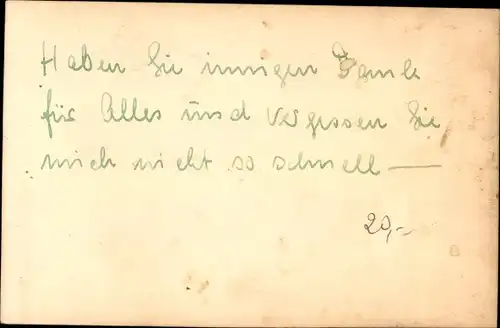 Haben Sie innigen Dank
für Alles und vergessen Sie
mich nicht so schnell —
20,-